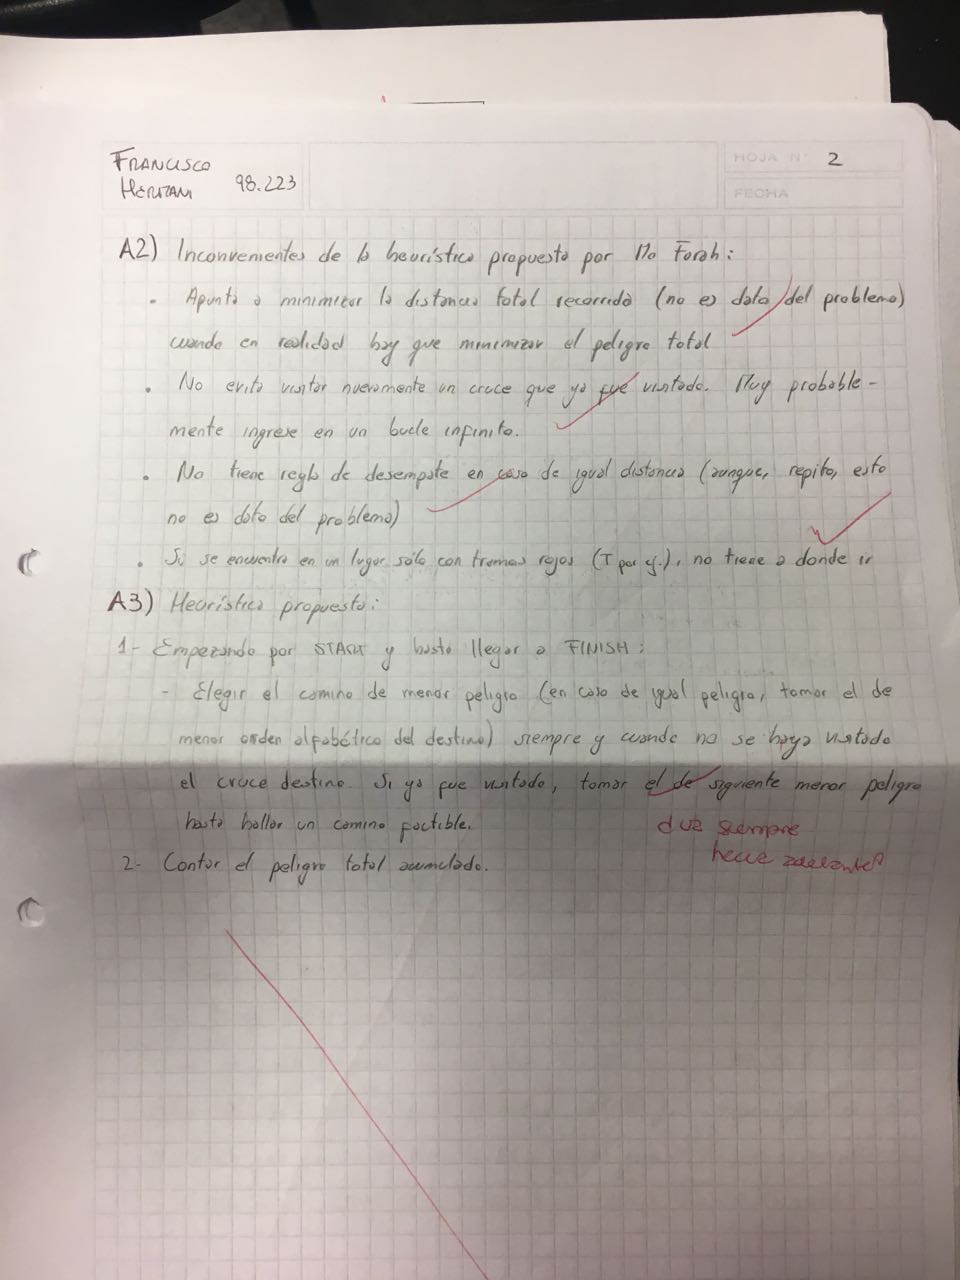 FRANCISCO
98.223
HOJA N° 2
FECHA
A2) Inconvenientes de la heurística propuesta por Mo Farah:
• Apunta a minimizar la distancia total recorrida (no es dato del problema)
cuando en realidad hay que minimizar el peligro total
• No evita visitar nuevamente un cruce que ya fue visitado. Muy probable-
mente ingrese en un bucle infinito.
• No tiene regla de desempate en caso de igual distancia (aunque, repito, esto
no es dato del problema)
• Si se encuentra en un lugar sólo con tramos rojos (T por ej.), no tiene a donde ir
A3) Heurística propuesta:
1- Empezando por START y hasta llegar a FINISH:
- Elegir el camino de menor peligro (en caso de igual peligro, tomar el de
menor orden alfabético del destino) siempre y cuando no se haya visitado
el cruce destino. Si ya fue visitado, tomar el de siguiente menor peligro
hasta hallar un camino factible.
siempre
2- Contar el peligro total acumulado.